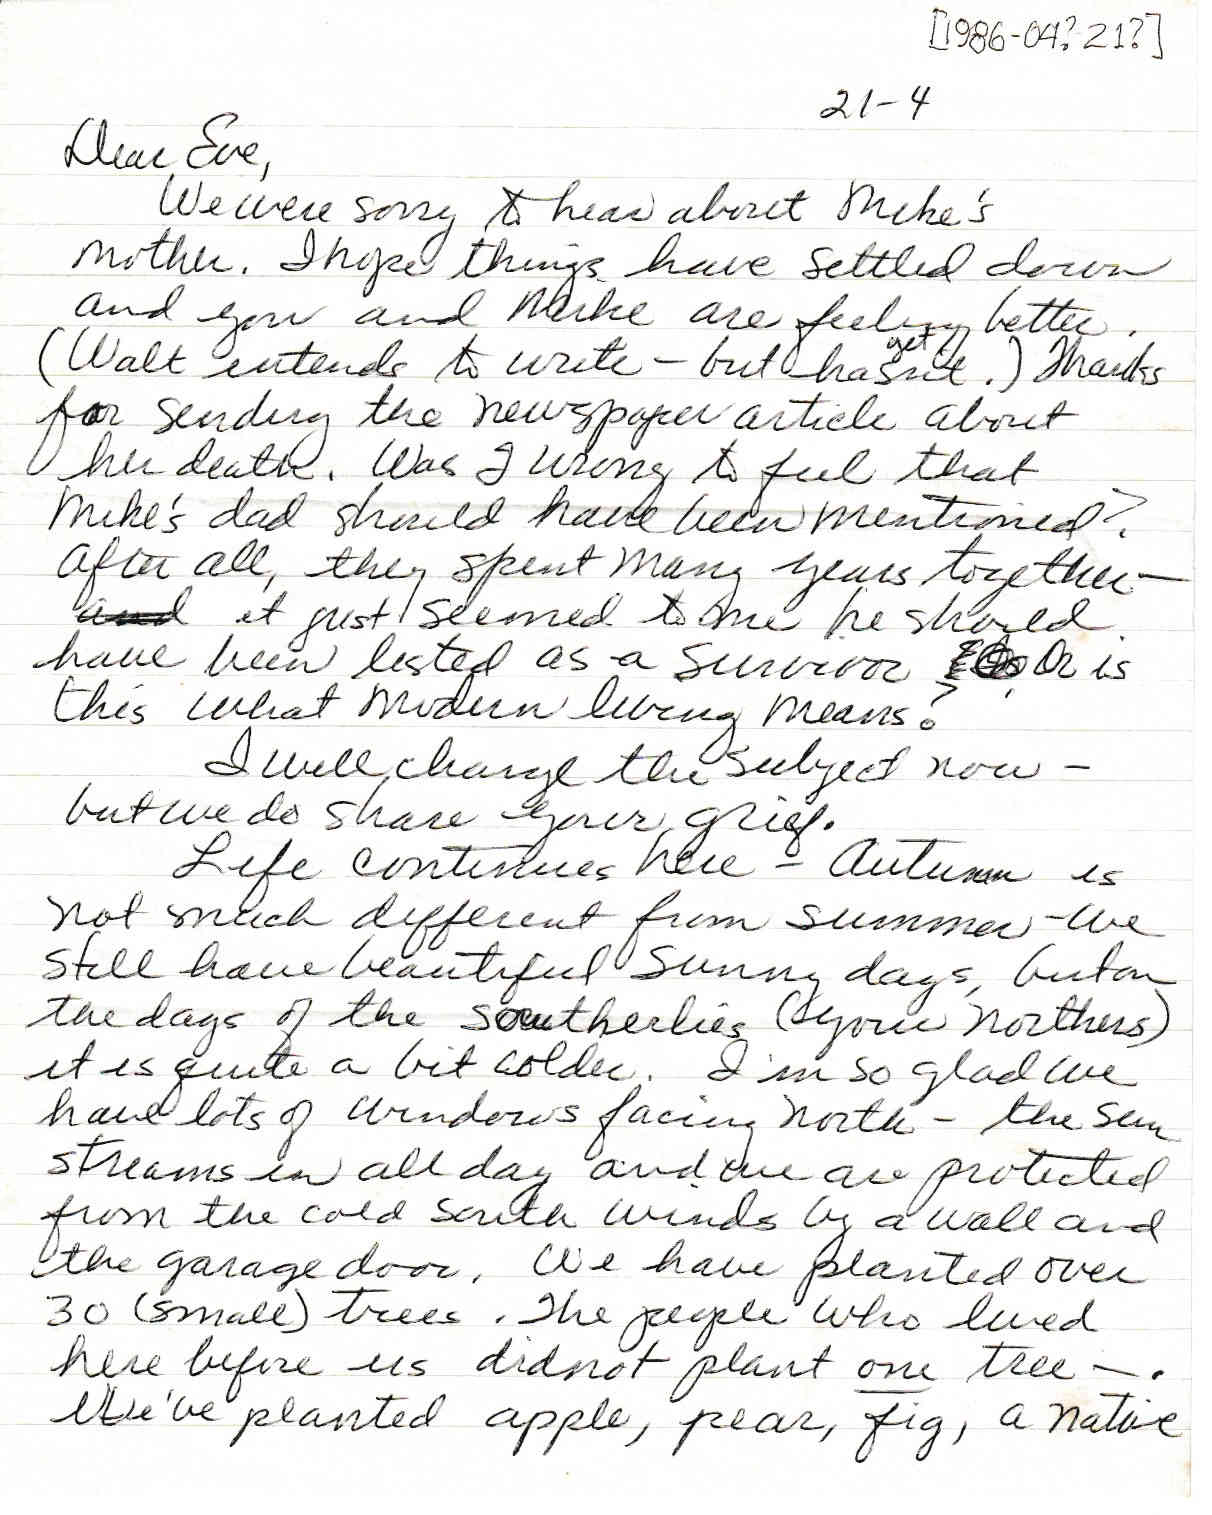 [1986-04?-21?]
21-4
Dear Eve,
We were sorry to hear about Mike's
mother. I hope things have settled down
and you and Mike are feeling better.
(Walt intends to write - but hasn't yet.) Thanks
for sending the newspaper article about
her death. Was I wrong to feel that
Mike's dad should have been mentioned?
After all, they spent many years together -
and it just seemed to me he should
have been listed as a survivor. Or is
this what modern living means?
I will change the subject now -
but we do share your grief.
Life continues here - Autumn is
not much different from summer - we
still have beautiful sunny days, but on
the days of the southerlies (your northers)
it is quite a bit colder. I'm so glad we
have lots of windows facing north - the sun
streams in all day and we are protected
from the cold south winds by a wall and
the garage door. We have planted over
30 (small) trees. The people who lived
here before us did not plant one tree -.
We've planted apple, pear, fig, a native